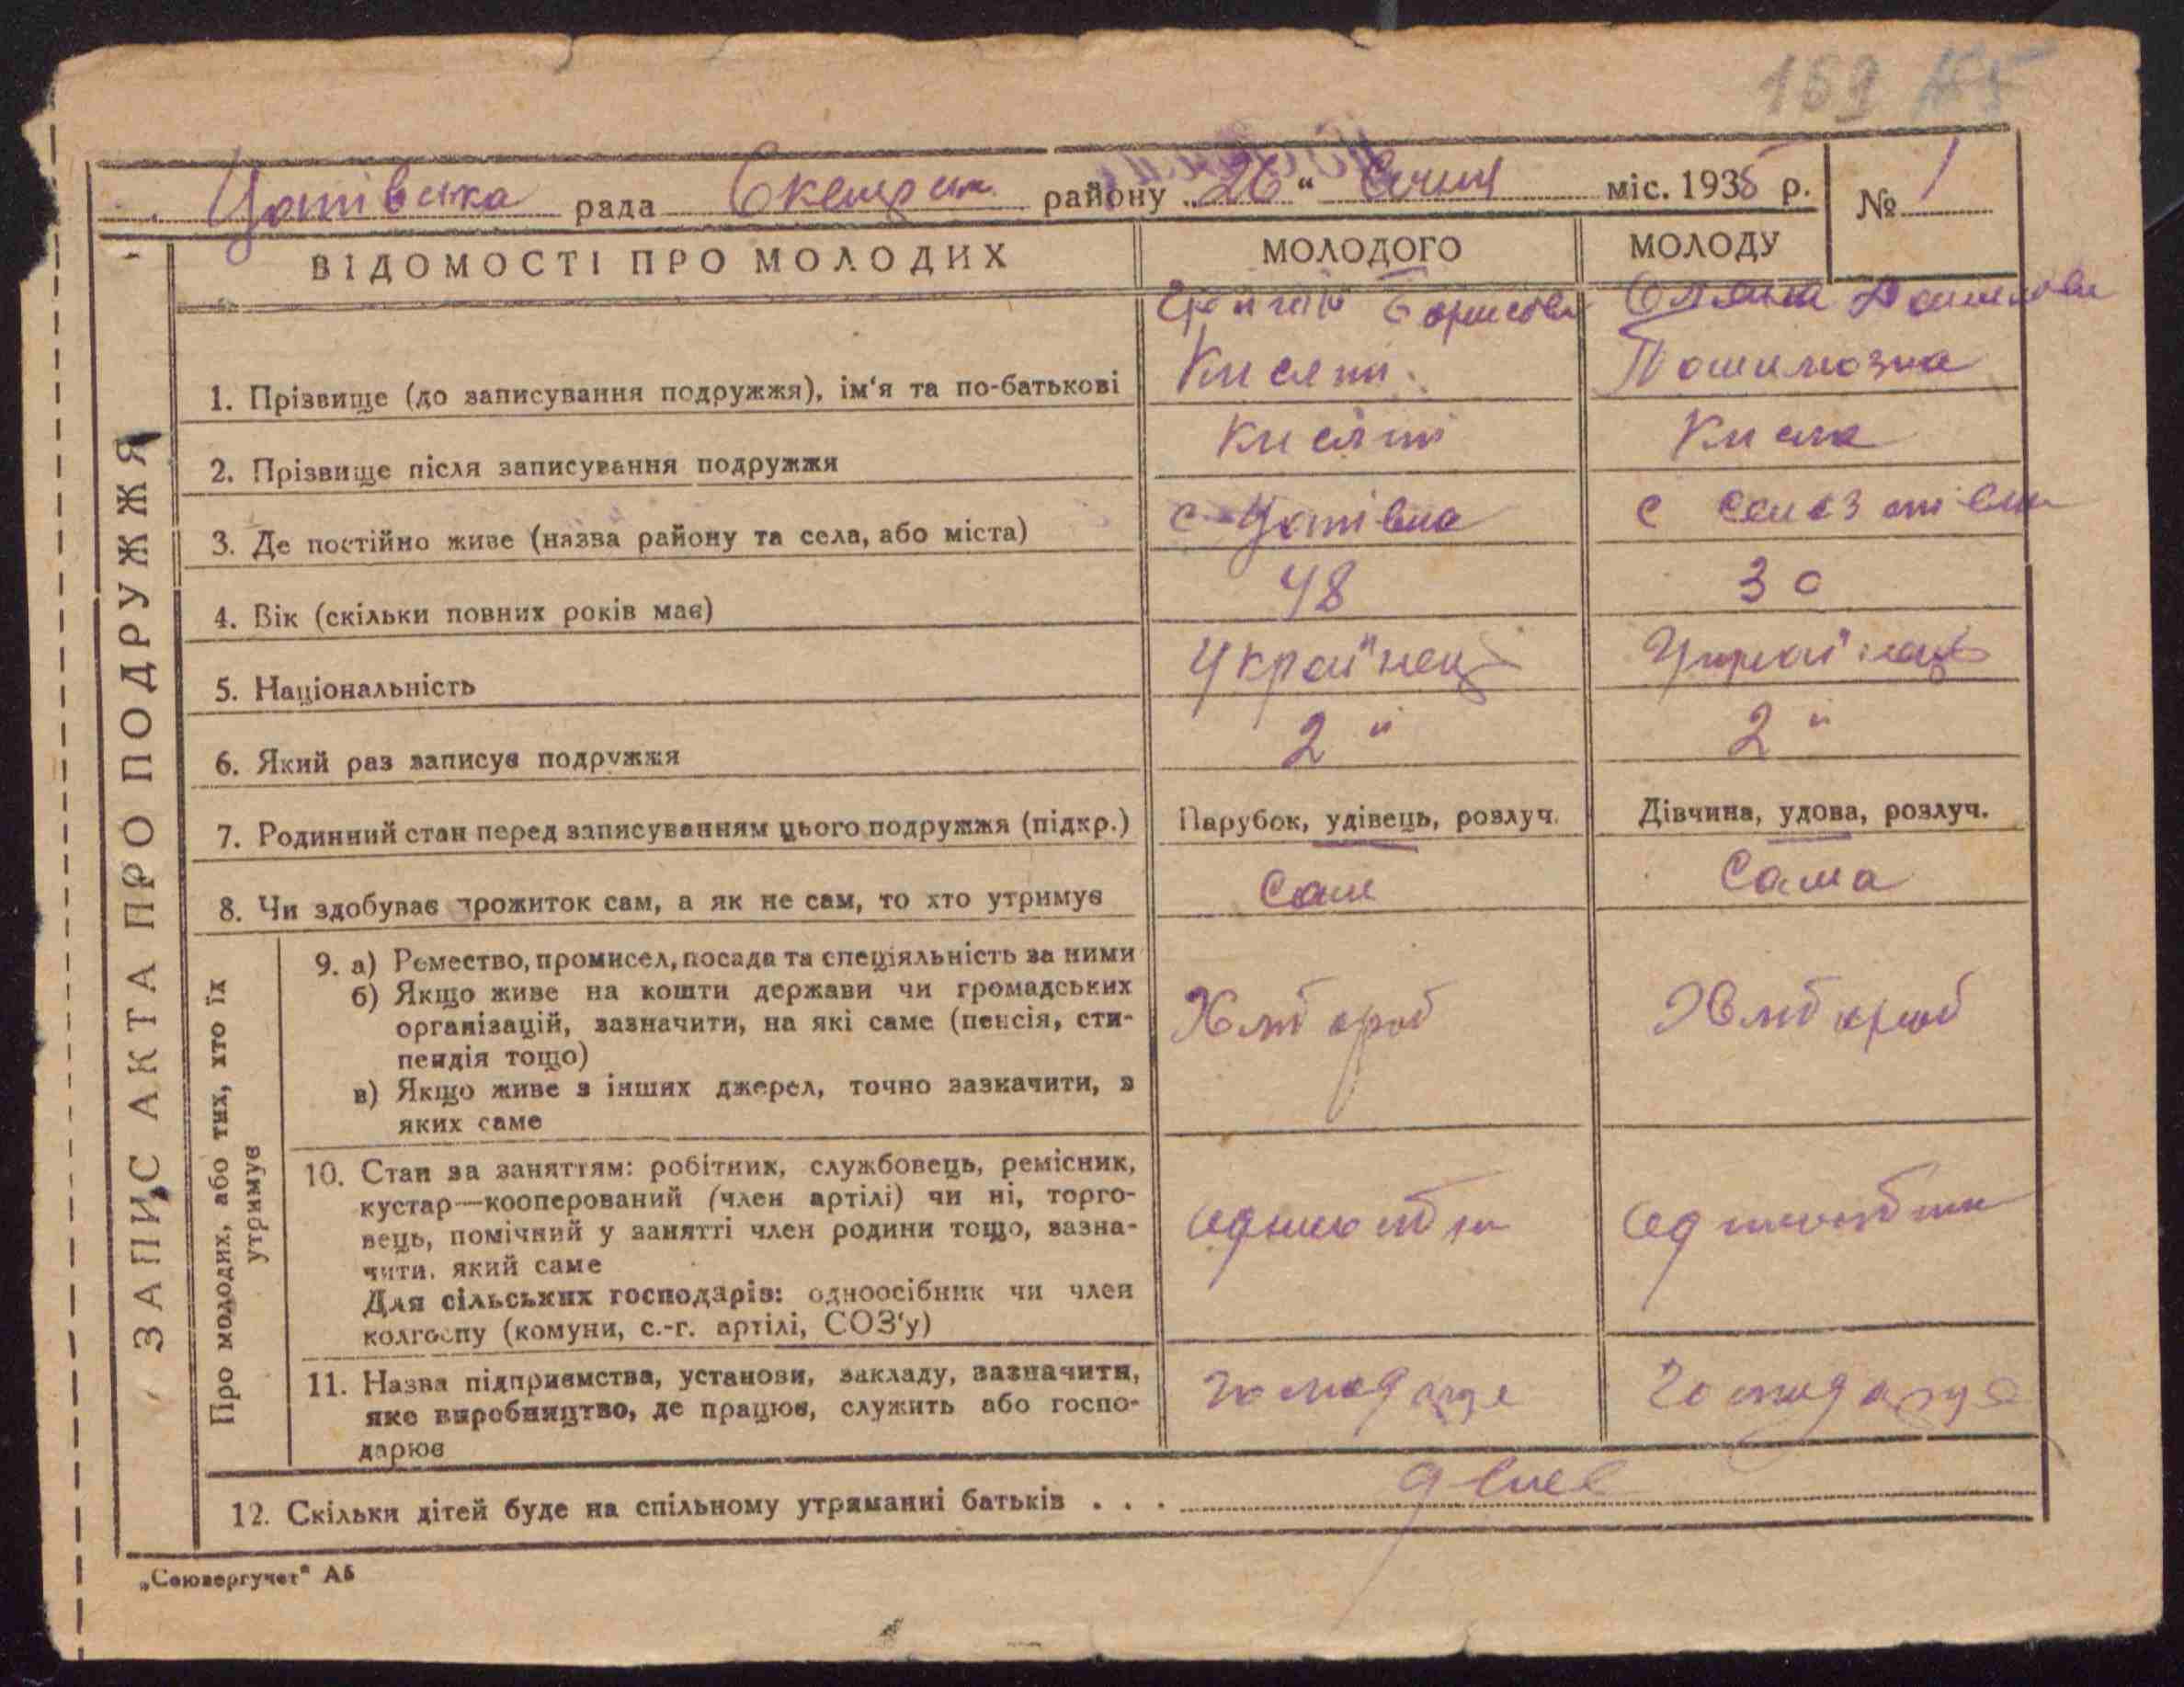 169
рада району „26“ Січня міс. 1935 р. № 1
ВІДОМОСТІ ПРО МОЛОДИХ
МОЛОДОГО
МОЛОДУ
ЗАПИС АКТА ПРО ПОДРУЖЖЯ
1. Прізвище (до записування подружжя), ім‘я та по-батькові
2. Прізвище після записування подружжя
3. Де постійно живе (назва району та села, або міста)
с
с
4. Вік (скільки повних років має)
48
30
5. Національність
Українець
Українець
6. Який раз записує подружжя
2 й
2 й
7. Родинний стан перед записуванням цього подружжя (підкр.)
Парубок, удівець, розлуч.
Дівчина, удова, розлуч.
8. Чи здобуває прожиток сам, а як не сам, то хто утримує
Сам
Сама
Про молодих, або тих, хто їх
утримує
9. а) Ремество, промисел, посада та спеціяльність за ними
б) Якщо живе на кошти держави чи громадських
організацій, зазначити, на які саме (пенсія, сти-
пендія тощо)
в) Якщо живе з інших джерел, точно зазначити, з
яких саме
Хлібороб
Хлібороб
10. Стан за заняттям: робітник, службовець, ремісник,
кустар—кооперований (член артілі) чи ні, торго-
вець, помічний у занятті член родини тощо, зазна-
чити, який саме
Для сільських господарів: одноосібник чи член
колгоспу (комуни, с.-г. артілі, СОЗ‘у)
11. Назва підприємства, установи, закладу, зазначити,
яке виробництво, де працює, служить або госпо-
дарює
12. Скільки дітей буде на спільному утриманні батьків . . .
„Союзоргучет“ А5